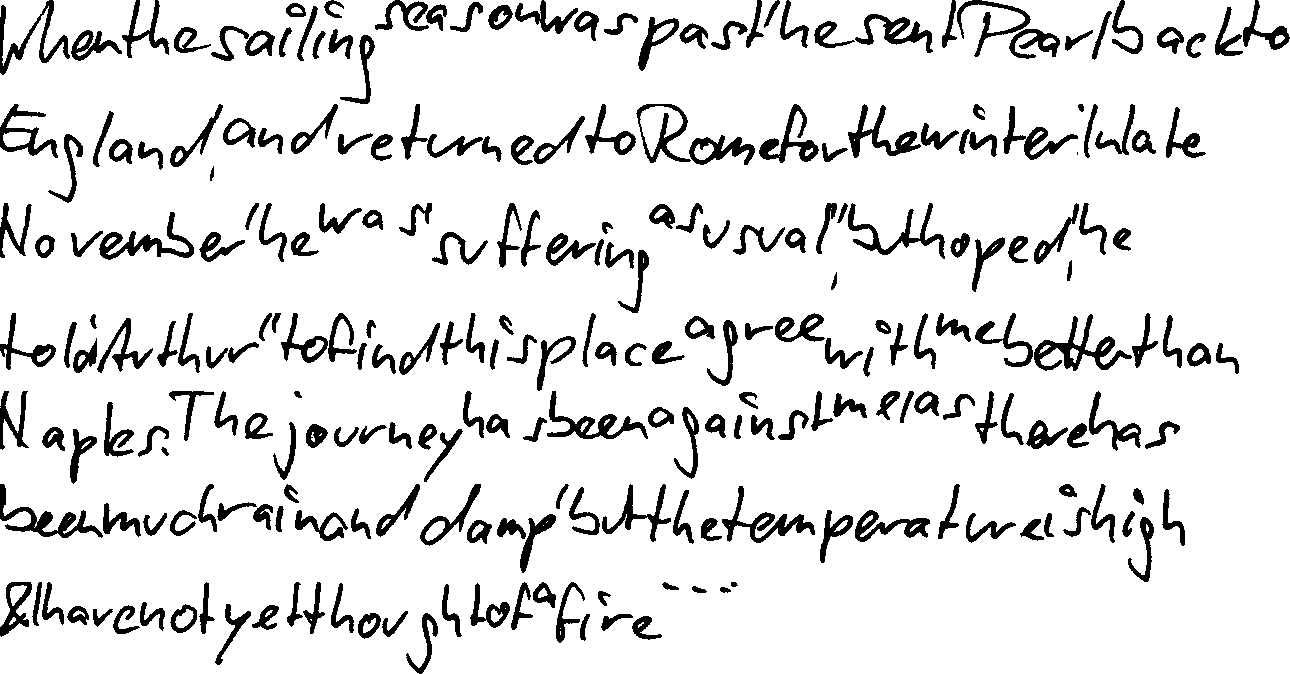 When the sailing season was past he sent Pearl back to
England, and returned to Rome for the winter. In late
November he was suffering as usual, but hoped, he
told Arthur "to find this place agree with me better than
Naples. The journey has been against me, as there has
been much rain and damp but the temperature is high
& I have not yet thought of a fire ...